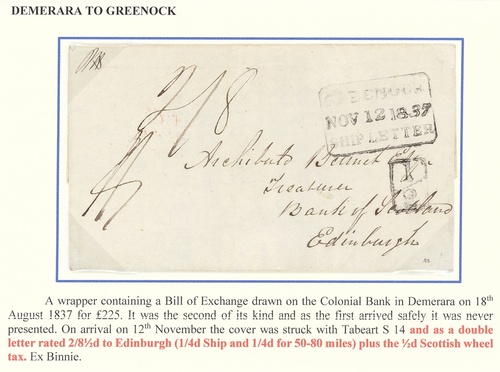 DEMERARA TO GREENOCK
2/8
NOV 12 1837
SHIP LETTER
Archibald Bennet Esqr
Treasurer
Bank of Scotland
Edinburgh
A wrapper containing a Bill of Exchange drawn on the Colonial Bank in Demerara on 18th
August 1837 for £225. It was the second of its kind and as the first arrived safely it was never
presented. On arrival on 12th November the cover was struck with Tabeart S 14 and as a double
letter rated 2/8½d to Edinburgh (1/4d Ship and 1/4d for 50-80 miles) plus the ½d Scottish wheel
tax. Ex Binnie.